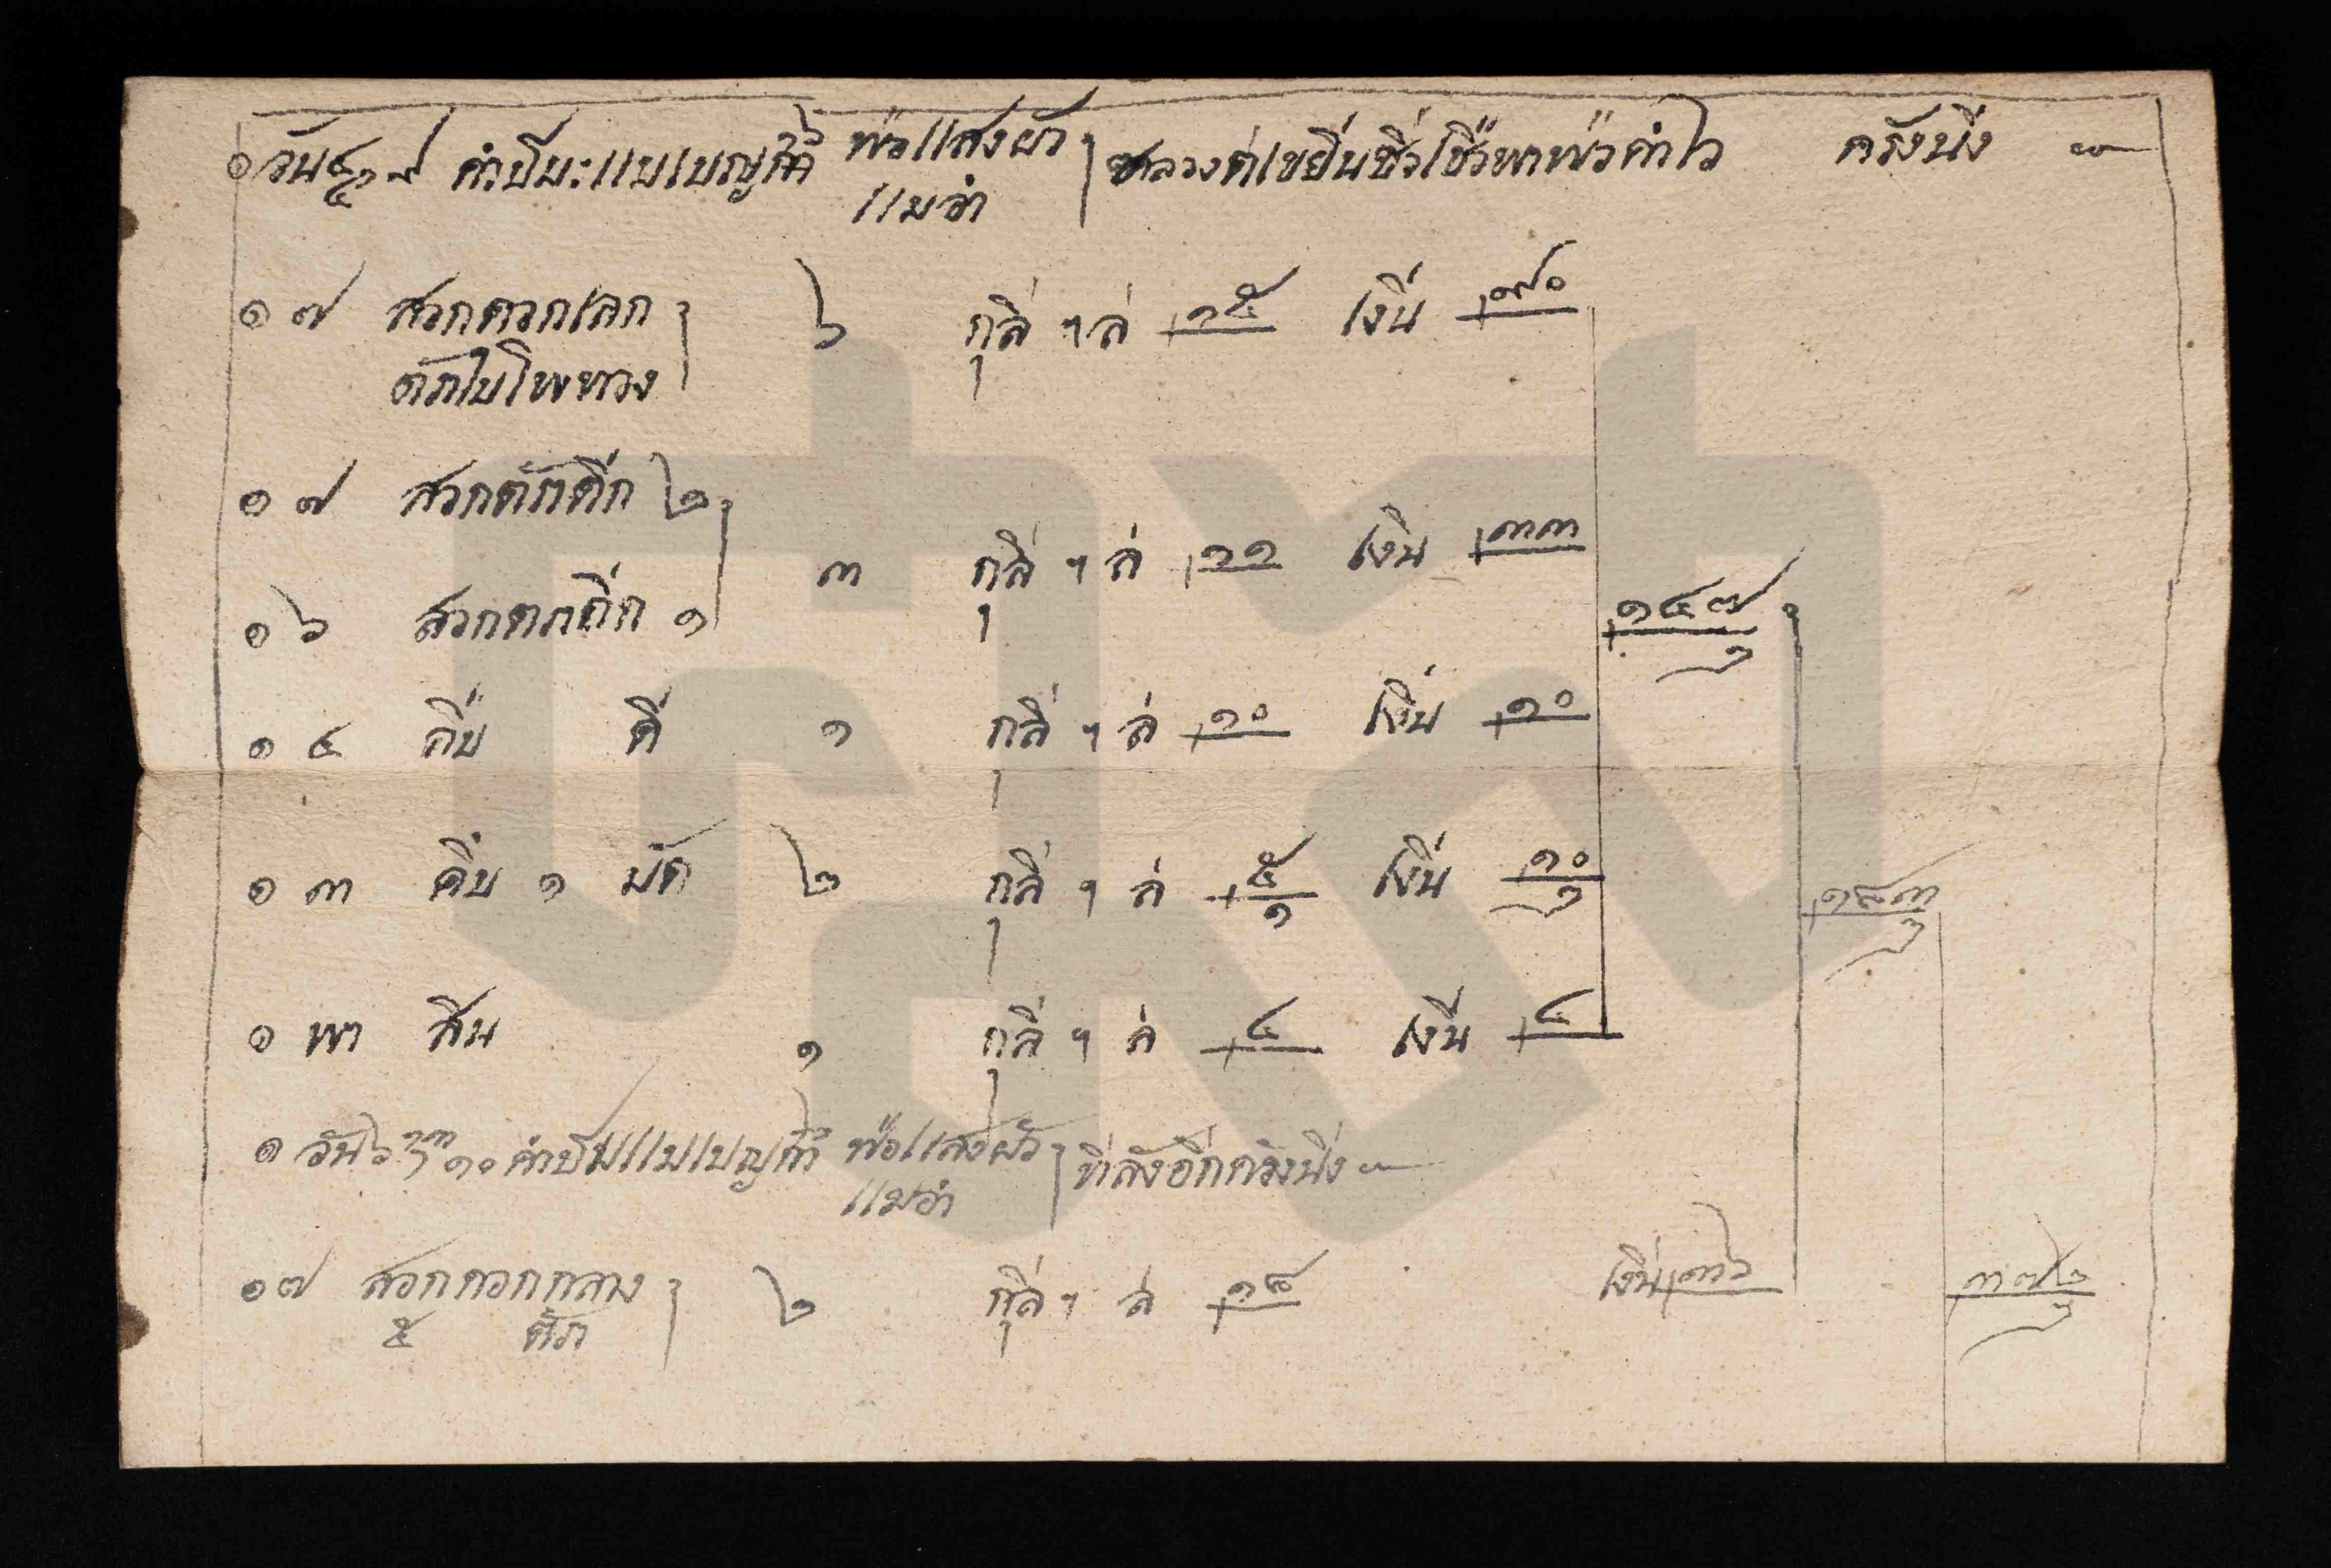 ๑ วัน ๔ ๙ ค่ำปีมะแมเบญ พ่อแสงผัว แมอ่ำ หลวงต่เขยีนซื่วเชื่วพาพ่วคำไว ครังนึ่ง ~
๑ ๗ สวกควกเลก ๖ กุลี่ ฯ ล่ ๑๕ เงิ่น ๙๐
ตัภใบโพทวง
๑ ๗ สวกตัภตี่ก ๒
๓ กุลี่ ฯ ล่ ๑๑ เงิน ๓๓
๑ ๖ สวกตภถี่ก ๑
๑๔๗ ๑
๑ ๔ คืบ ดี ๑ กุลี่ ฯ ล่ ๑๐ เงิ่น ๑๐
๑ ๓ คืบ ๑ มัด ๒ กุลี่ ฯ ล่ ๕ ๑ เงิ่น ๑๐ ๑
๑๘๓ ๑
๑ พา สิน ๑ กุลี่ ฯ ล่ ๔ เงิ่น ๔
๑ วัน ๖ ๑๓ ๑๐ ค่ำปีมแมเบญ พ่อแสงผัว แมอ่ำ ที่ลังอีกครังนึ่ง ~
๑ ๗ สอกกอกกลาง ๒ กุลี่ ฯ ล่ ๑๘ เงิ่น ๓๖ ๓๗๒ ๑
๕ ตัภ